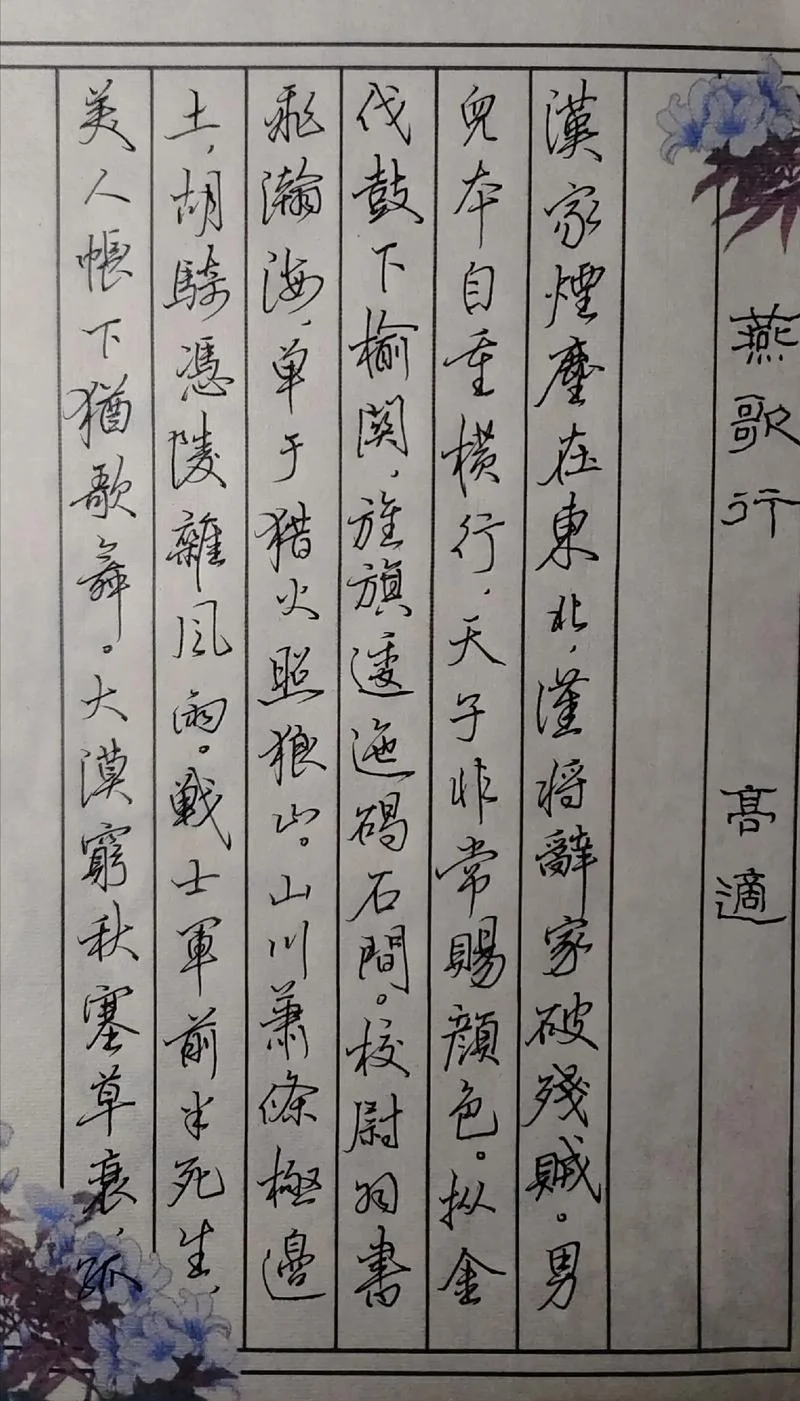 燕歌行 高適
漢家煙塵在東北，漢將辭家破殘賊。男
兒本自重橫行，天子非常賜顏色。摐金
伐鼓下榆関，旌旗逶迤碣石間。校尉羽書
飛瀚海，单于猎火照狼山。山川蕭條極邊
土，胡騎憑陵雜風雨。戰士軍前半死生，
美人帳下猶歌舞。大漠窮秋塞草衰，孤